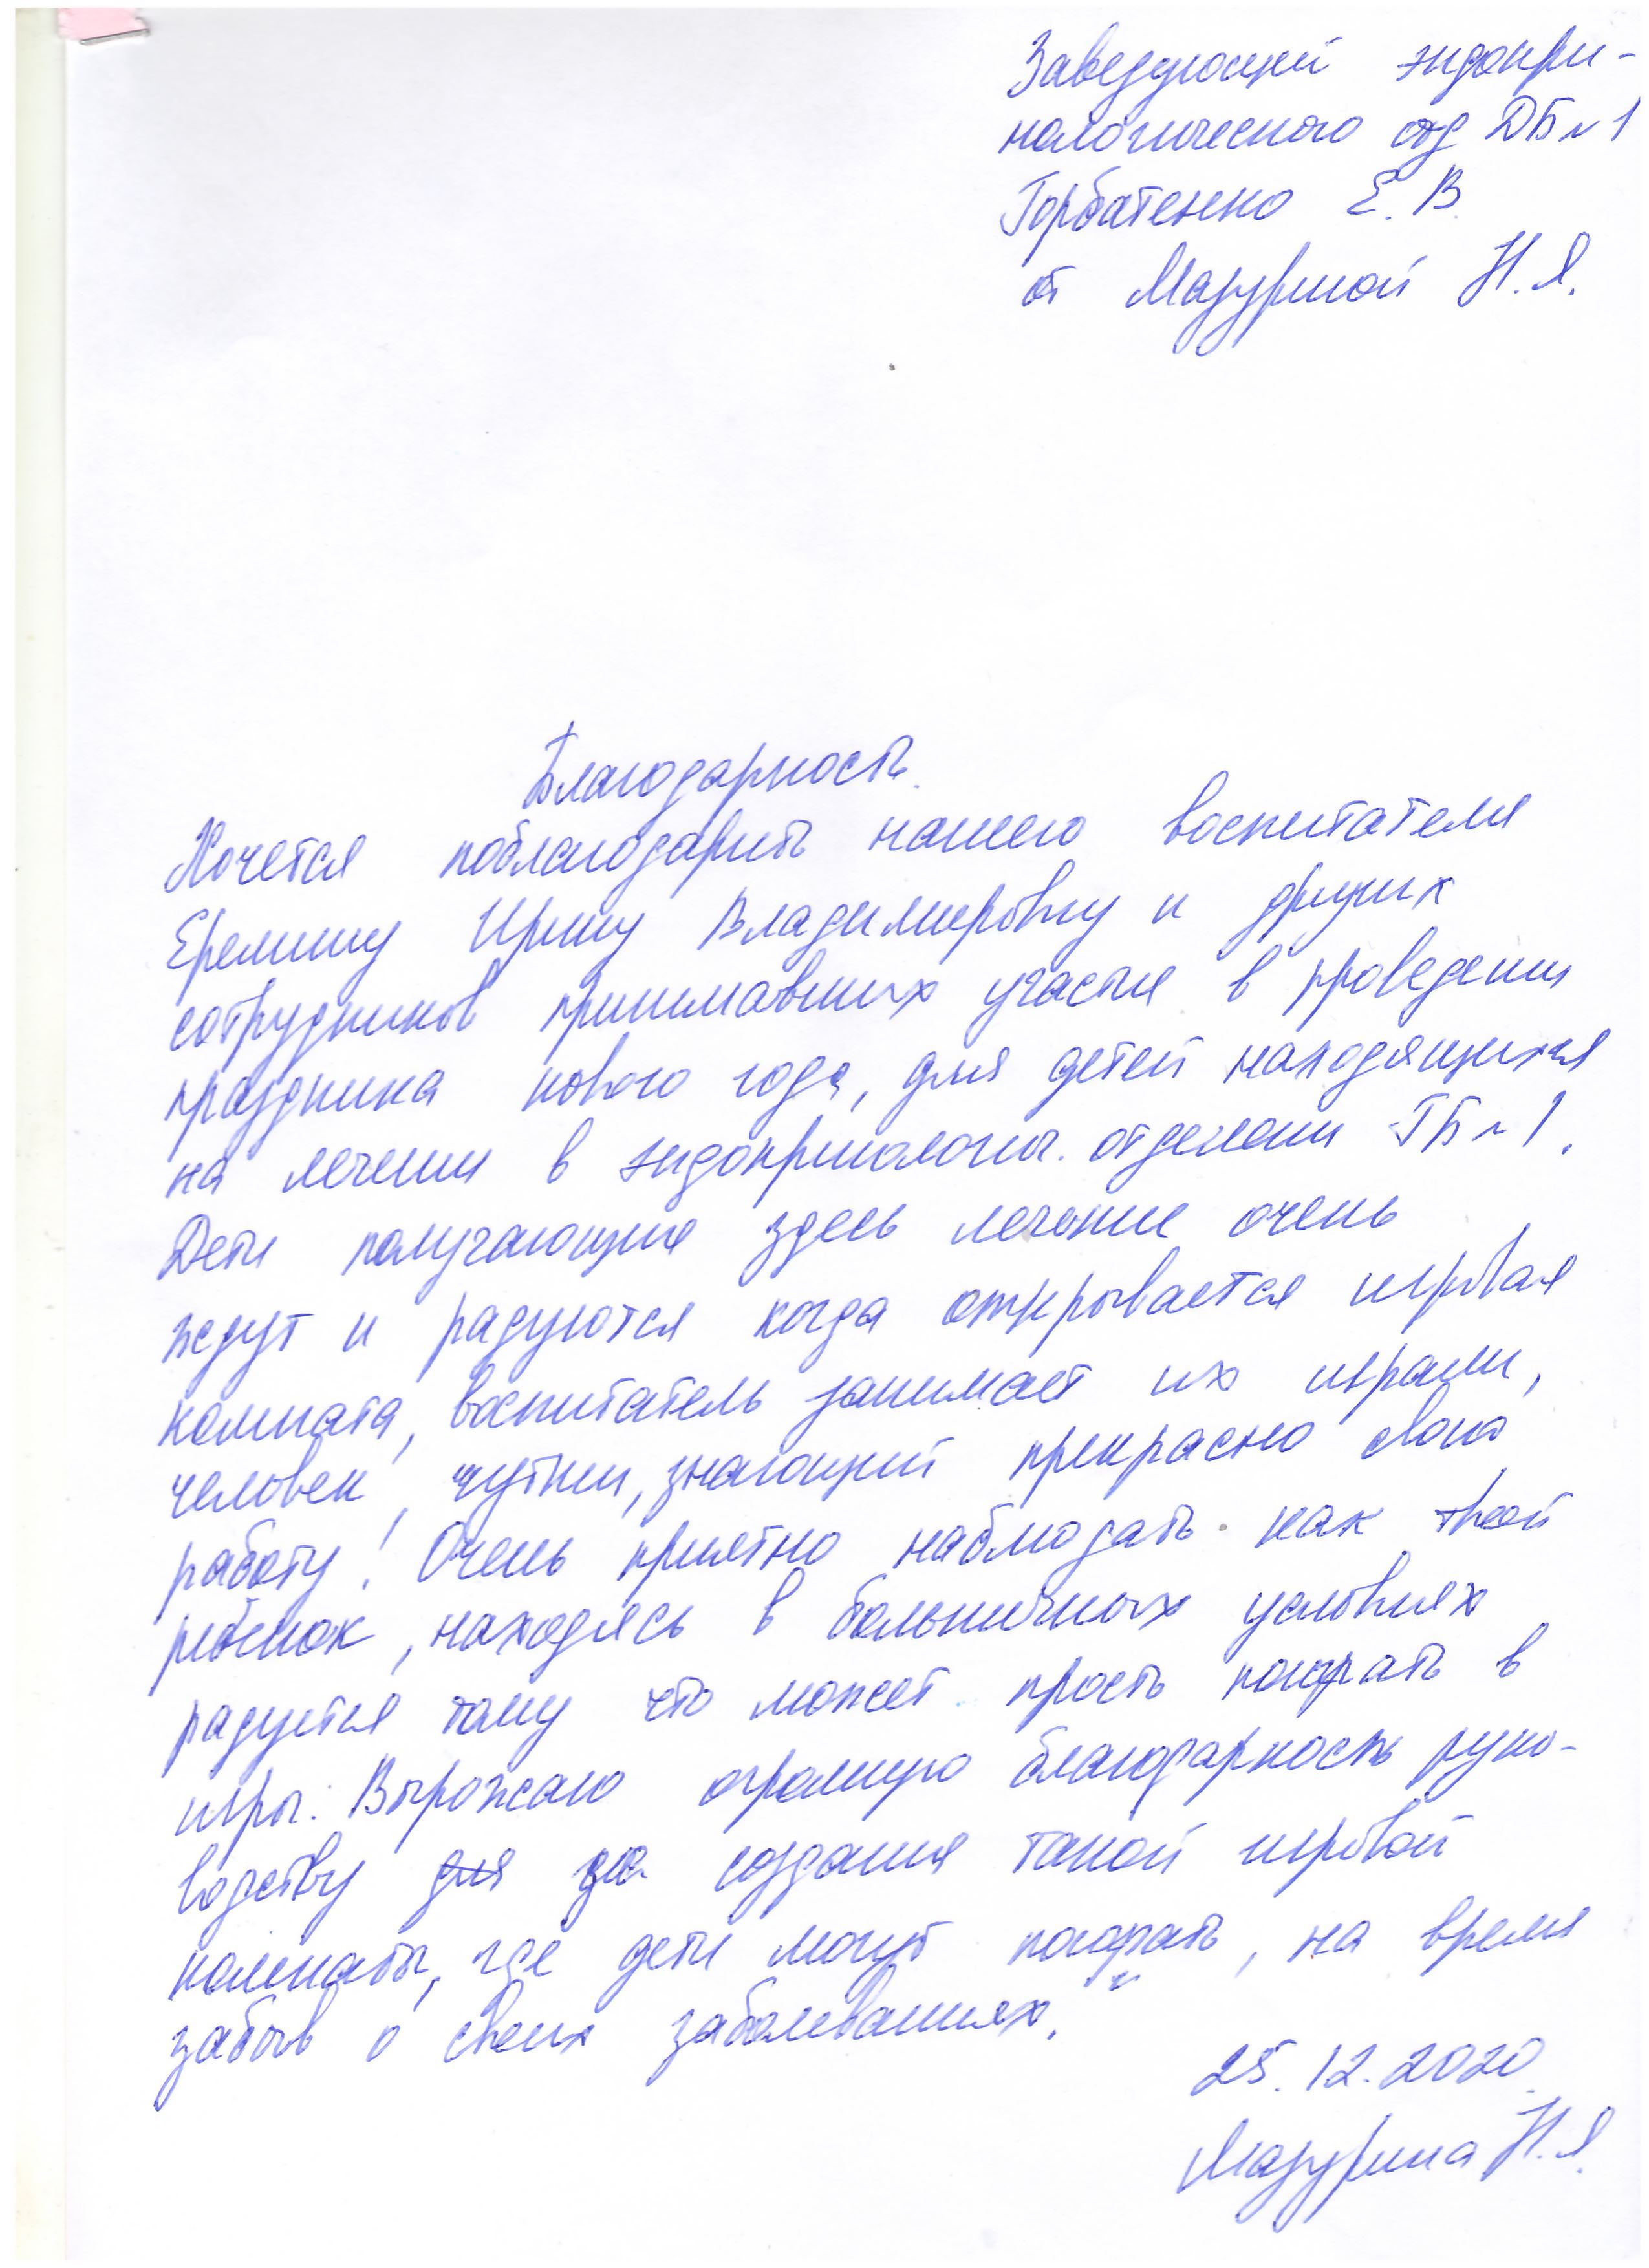 Заведующей эндокри-
нологического отд ДБ №1
Горбатенко Е. В.
от Мазуриной Н. Я.
Благодарность.
Хочется поблагодарить нашего воспитателя
Еремину Ирину Владимировну и других
сотрудников принимавших участие в проведении
праздника нового года, для детей находящихся
на лечении в эндокринологич. отделении ГБ №1.
Дети получающие здесь лечение очень
ждут и радуются когда открывается игровая
комната, воспитатель занимает их играми,
человек, чуткий, знающий прекрасно свою
работу! Очень приятно наблюдать как твой
ребенок, находясь в больничных условиях
радуется тому что может прость поиграть в
игры. Выражаю огромную благодарность руко-
водству для за создания такой игровой
комнаты, где дети могут поиграть, на время
забыв о своих заболеваниях.
25.12.2020
Мазурина Н. Я.